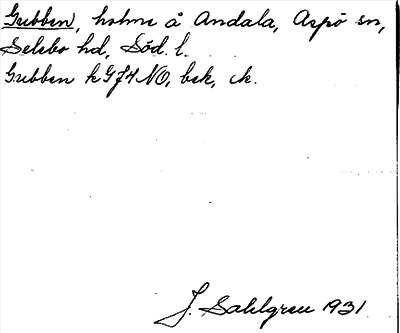 Gubben, holme å Andala, Aspö sn,
Selebo hd, Söd. l.
Gubben k G74 NO, bek, ek.
J. Sahlgren 1931